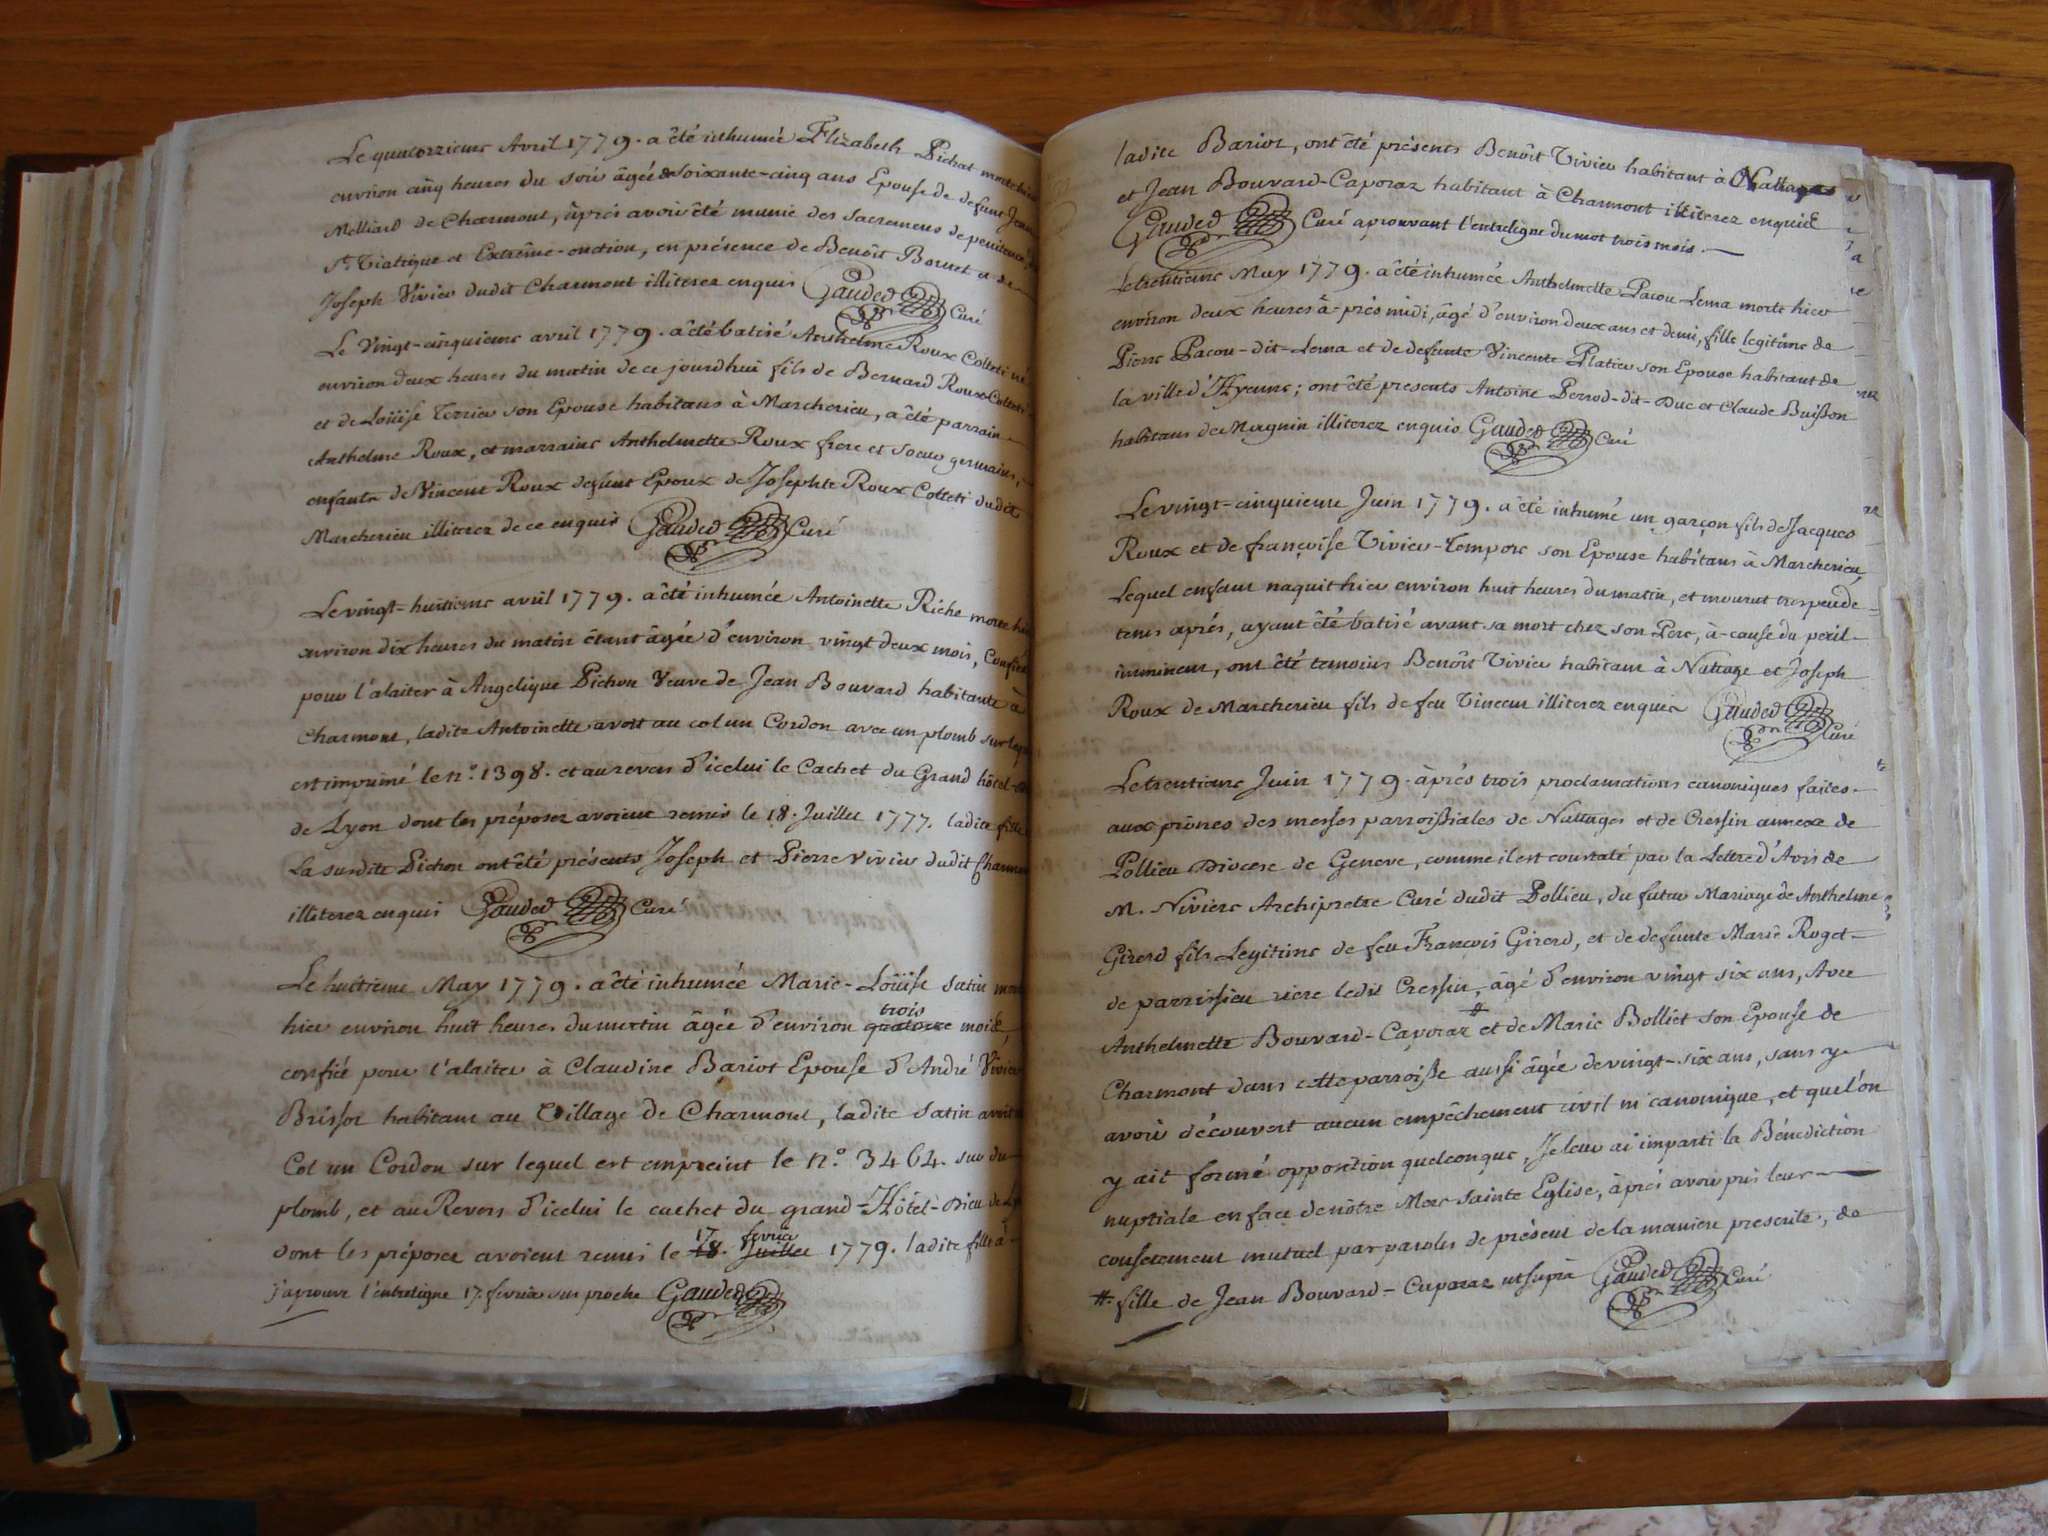 Le quatorzieme Avril 1779. a êté inhumée Elizabeth Pichat morte hier
environ cinq heures du soir âgée de soixante-cinq ans Epouse de defunt Jean
Melliard de Charmont, àprés avoir êté munie des sacremens de penitence,
St. Viatique et Extrême-onction, en présence de Benoît Bornet et de
Joseph Vivier dudit Charmont illiterez enquis Gauded Curé
Le Vingt-cinquieme avril 1779. a êté batisé Anthelme Roux Colleti né
environ deux heures du matin de ce jourdhui fils de Bernard Roux-Colleti
et de Loüise Terrier son Epouse habitans à Marcherieu, a êté parrain
Anthelme Roux, et marraine Anthelmette Roux frere et soeur germains,
enfants de Vincent Roux defunt Epoux de Josephte Roux Colleti dudit
Marcherieu illiterez de ce enquis Gauded Curé
Le vingt-huitieme avril 1779. a êté inhumée Antoinette Riche morte hier
environ dix heures du matin êtant âgée d'environ vingt deux mois, Confiée
pour l'alaiter à Angelique Pichon Veuve de Jean Bouvard habitante à
Charmont, ladite Antoinette avoit au col un Cordon avec un plomb sur lequel
est imprimé le n.o 1398. et au revers d'icelui le Cachet du Grand hôtel-
de Lyon dont les préposez avoient remis le 18. Juillet 1777. ladite fille
La susdite Pichon ont êté présents Joseph et Pierre Vivier dudit Charmont
illiterez enquis Gauded Curé
Le huitieme May 1779. a êté inhumée Marie-Loüise Satin morte
trois
hier environ huit heures du matin âgée d'environ quatorze mois,
confiée pour l'alaiter à Claudine Bariot Epouse d'André Vivier
Brissot habitant au Village de Charmont, ladite Satin avoit
Col un Cordon sur lequel est empreint le n.o 3464. sur du
plomb, et au Revers d'icelui le cachet du grand-Hôtel-Dieu de Lyon
17. fevrier
dont les préposez avoient remis le 18. Juillet 1779. ladite fille à
j'aprouve l'entreligne 17. fevrier sur proche Gauded
ladite Bariot, ont êté présents Benoît Vivier habitant à Nattages
et Jean Bouvard-Caporaz habitant à Charmont illiterez enquis
Gauded Curé aprouvant l'entreligne du mot trois mois.
Le trentieme May 1779. a êté inhumée Anthelmette Pacou-Lema morte hier
environ deux heures à-près midi, âgé d'environ deux ans et demi, fille legitime de
Pierre Pacou-dit-Lema et de defunte Vincente Platier son Epouse habitant de
la ville d'Hyenne; ont êté presents Antoine Perrod-dit-Duc et Claude Buisson
habitans de Magnin illiterez enquis Gauded Curé
Le vingt-cinquieme Juin 1779. a êté inhumé un garçon fils de Jacques
Roux et de françoise Vivier-Tempore son Epouse habitans à Marcherieu,
Lequel enfant naquit hier environ huit heures du matin, et mourut tres peu de
tems aprés, ayant êté batisé avant sa mort chez son Pere, à-cause du péril
imminent, ont êté temoins Benôit Vivier habitant à Nattage et Joseph
Roux de Marcherieu fils de feu Vincent illiterez enquis Gauded
Curé
Le trentieme Juin 1779. àprés trois proclamations canoniques faites
aux prônes des messes parroissiales de Nattages et de Cressin annexe de
Pollieu Diocese de Geneve, comme il est constaté par la Lettre d'Avis de
M. Niviere Archipretre Curé dudit Pollieu, du futur Mariage de Anthelme
Girerd fils Legitime de feu François Girerd, et de defunte Marie Roget
de parrissieu riere ledit Cressin, âgé d'environ vingt six ans, Avec
Anthelmette Bouvard-Caporaz # et de Marie Bolliet son Epouse de
Charmont dans cette parroisse aussi âgée de vingt-six ans, sans y
avoir découvert aucun empêchement civil ni canonique, et que l'on
y ait formé opposition quelconque, Je leur ai imparti la Bénediction
nuptiale en face de nôtre Mere Sainte Eglise, àprés avoir pris leur
consentement mutuel par paroles de présent de la maniere prescrite, de
#. fille de Jean Bouvard-Caporaz ut suprà Gauded Curé